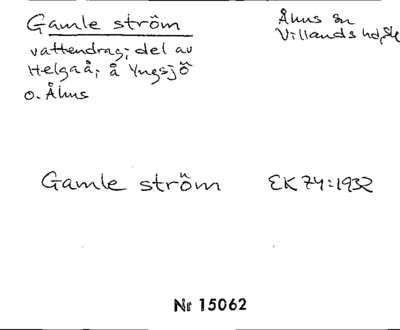 Gamle ström
Åhus sn
Villands hd, Sk
vattendrag; del av
Helgaå; å Yngsjö
o. Åhus
Gamle ström EK 74:1932
Nr 15062